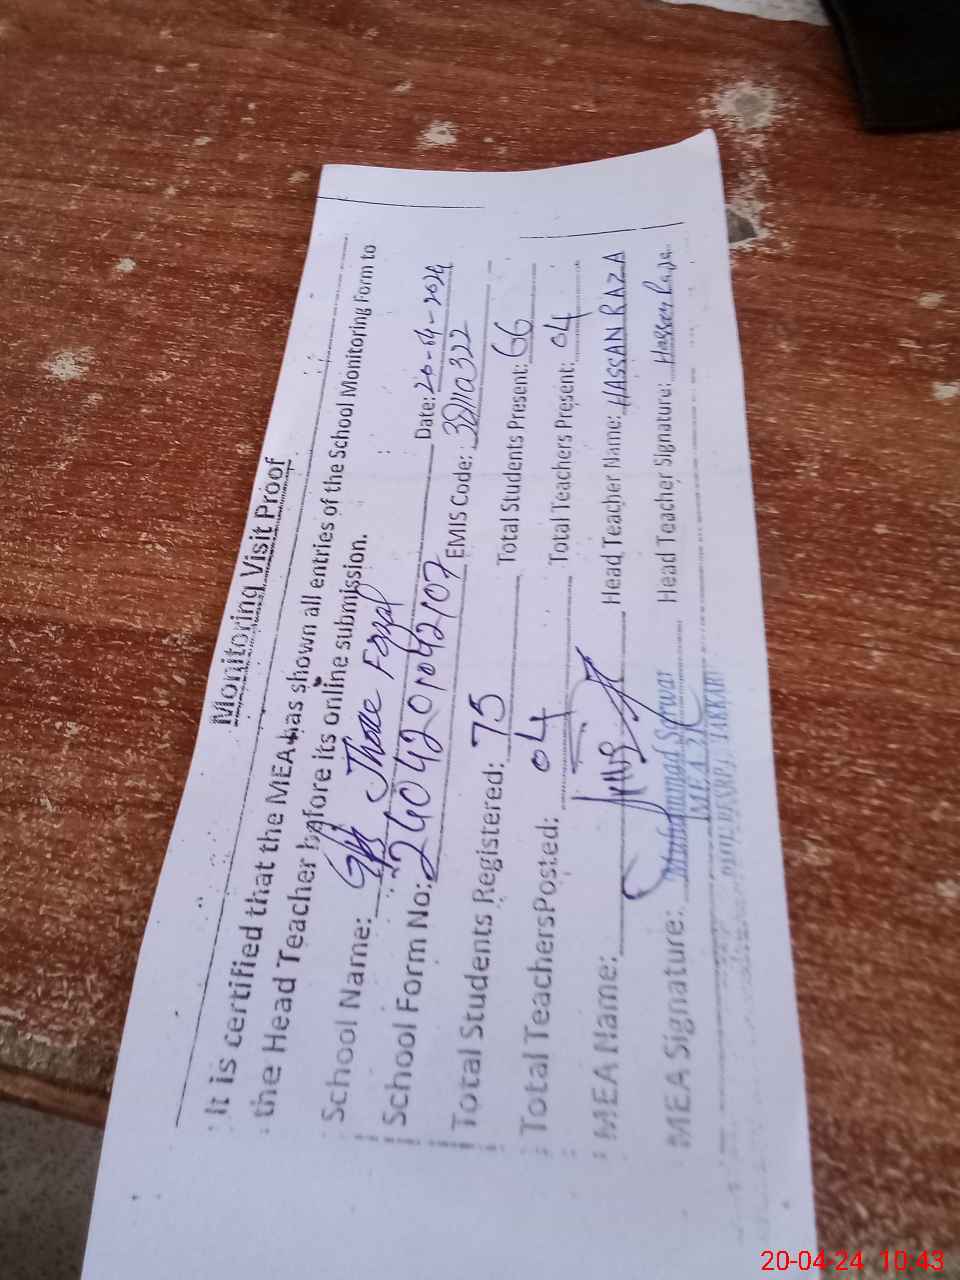 Monitoring Visit Proof
It is certified that the MEA has shown all entries of the School Monitoring Form to
the Head Teacher before its online submission.
School Name: Jhoke Fazal Date: 20-04-2024
School Form No: 2404201042107 EMIS Code:
Total Students Registered: 75 Total Students Present: 66
Total Teachers Posted: 04 Total Teachers Present: 04
MEA Name: Head Teacher Name: HASSAN RAZA
MEA Signature: Muhammad Sarwar Head Teacher Signature: Hassan Raza
20-04-24 10:43